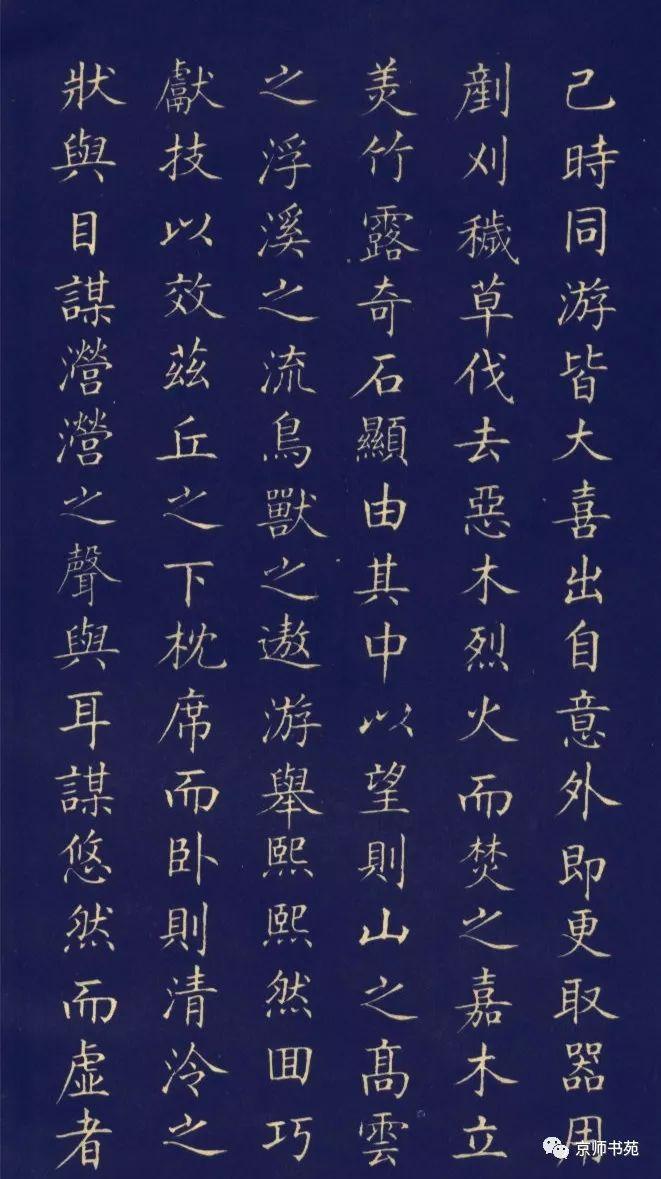 己時同游皆大喜出自意外即更取器用
剷刈穢草伐去惡木烈火而焚之嘉木立
美竹露奇石顯由其中以望則山之高雲
之浮溪之流鳥獸之遨游舉熙熙然回巧
獻技以效茲丘之下枕席而卧則清泠之
狀與目謀瀯瀯之聲與耳謀悠然而虛者
京师书苑